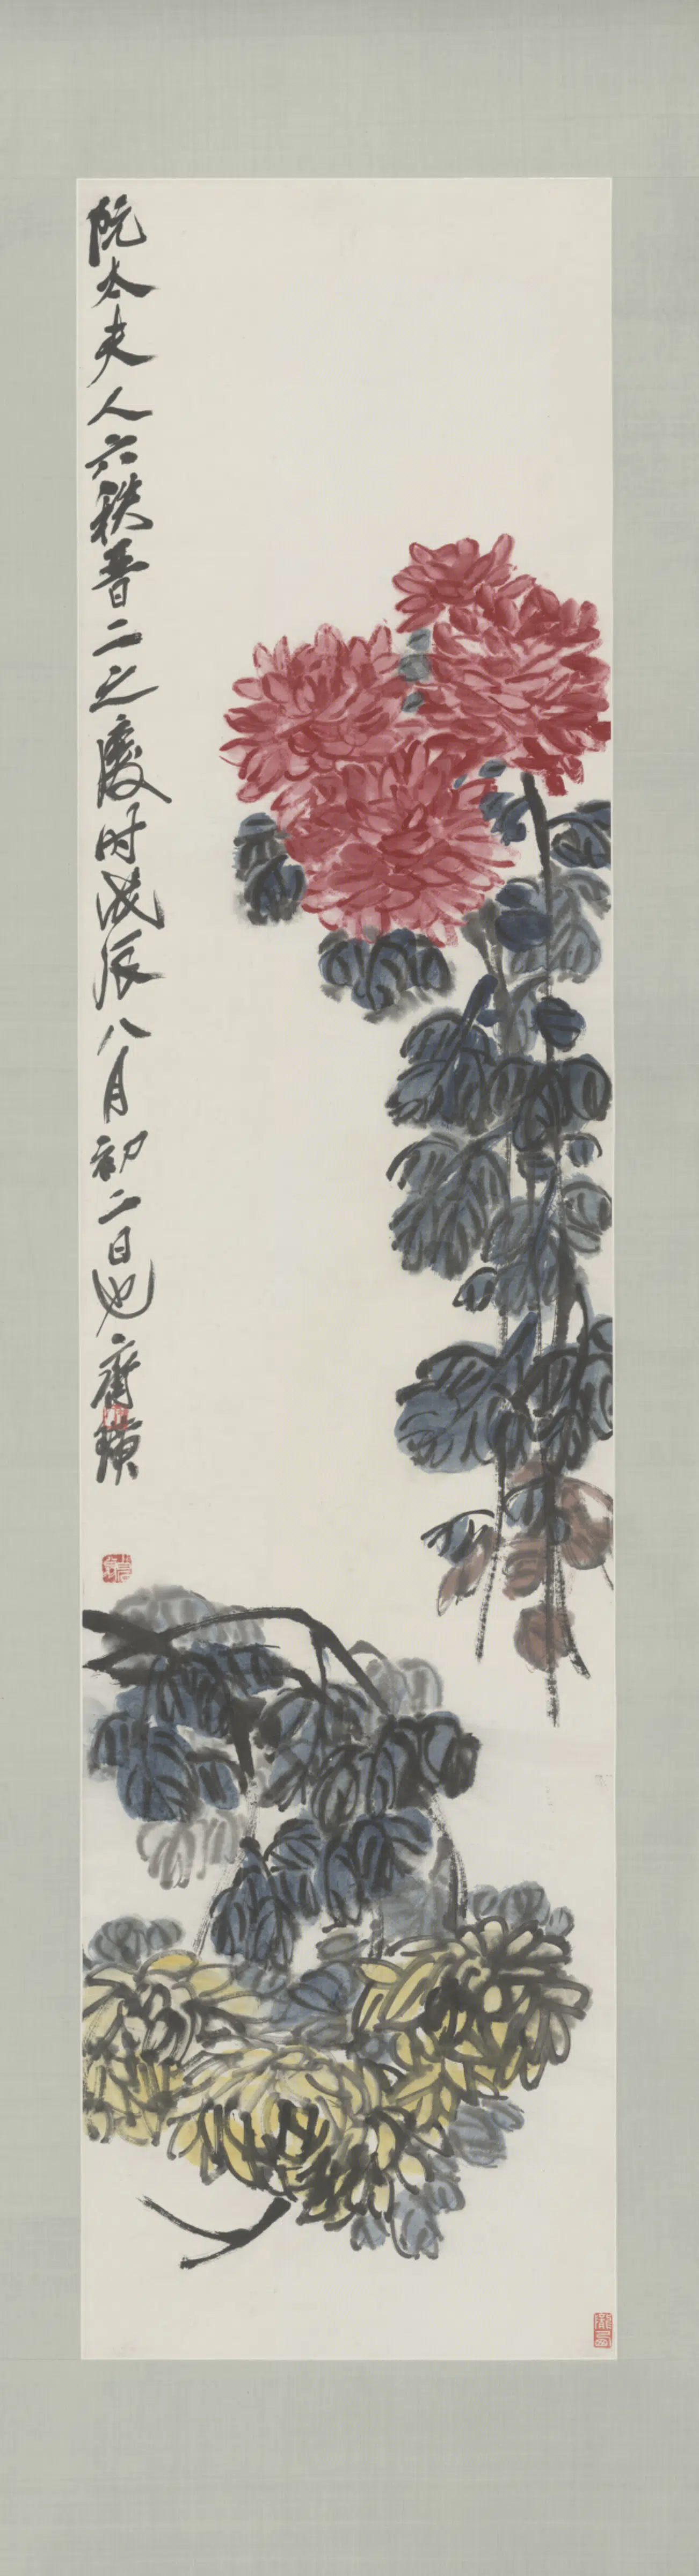 阮太夫人六秩晋二之慶时戊辰八月初二日也齊璜